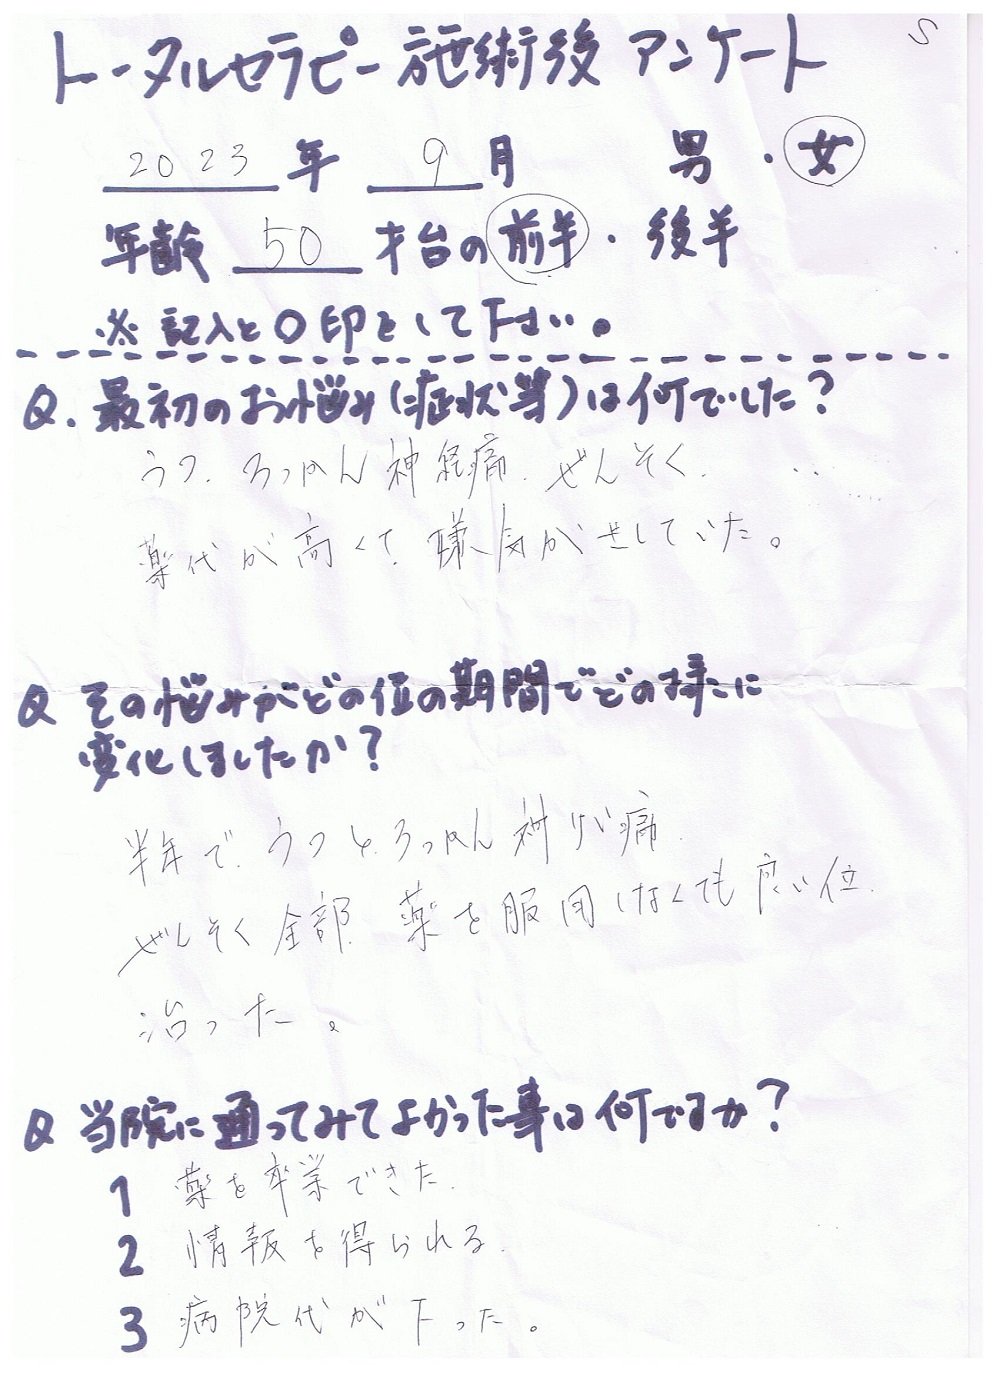 S
トータルセラピー施術後 アンケート
2023 年 9 月 男 ・ 女
年齢 50 才台の 前半 ・ 後半
※ 記入と〇印をして下さい。
Q. 最初のお悩み(症状等)は何でしたか?
うつ、ろっかん神経痛、ぜんそく、
薬代が高くて、嫌気がさしていた。
Q その悩みがどの位の期間でどの様に
変化しましたか?
半年で、うつと、ろっかん神けい痛、
ぜんそく全部、薬を服用しなくても良い位、
治った。
Q 当院に通ってみてよかった事は何ですか?
1 薬を卒業できた、
2 情報を得られる、
3 病院代が下った。